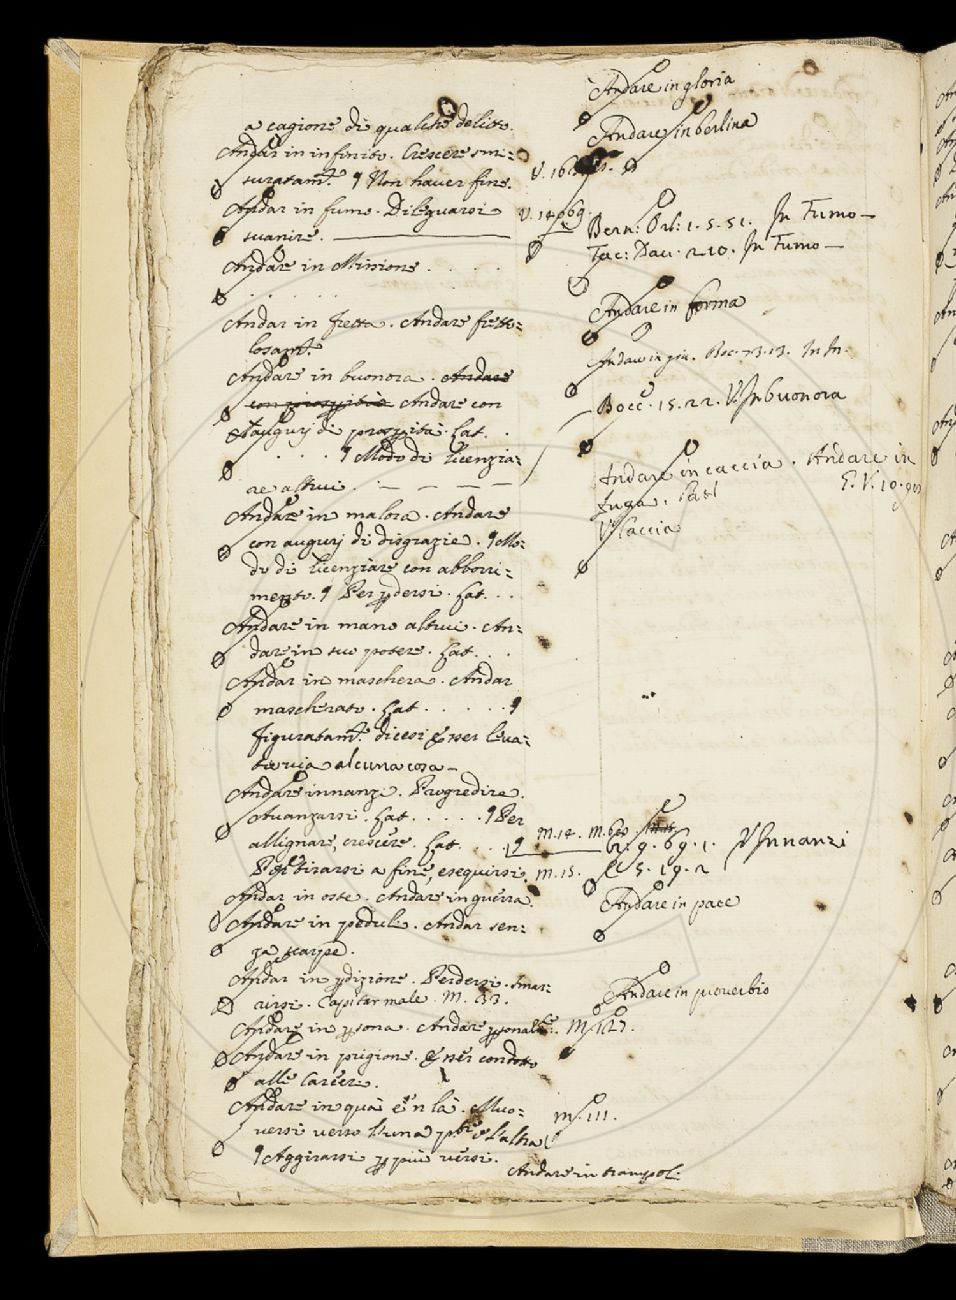 a cagione di qualche delitto.
Andar in infinito. Crescere smi=
suratam.e ¶ Non haver fine.
Andar in fumo. Dileguarsi
svanire.
Andare in Missione . . . .
. . . . . .
Andar in fretta. Andare fretto=
losam.te
Andare in buonora. Andare
con prosperità Andare con
augurj di prosperità. Lat. .
. . . . ¶ Modo di licenzia=
re altrui. — — — —
Andare in malora. Andare
con augurj di disgrazie. ¶ Mo=
do di licenziare con abborri=
mento. ¶ Per perdersi. Lat. . .
Andare in mano altrui. An=
dare in suo potere. Lat. . .
Andar in maschera. Andar
mascherato. Lat. . . . . . ¶
figuratam.e dicesi esser leva=
ta via alcuna cosa —
Andare innanzi. Progredire.
Avanzarsi. Lat. . . . . ¶ Per
allignare, crescere. Lat. . . . ¶
Per tirarsi a fine, eseguirsi.
Andar in oste. Andare in guerra.
Andare in peduli. Andar sen=
za scarpe.
Andar in perdizione. Perdersi. Smar=
rirsi. Capitar male. M. 33.
Andare in persona. Andare personalm.e. M. 127.
Andare in prigione. Esser condotto
alle Carceri.
Andare in quà e 'n là. Muo=
versi verso l'una parte e l'altra
¶ Aggirarsi per più versi.
M. 111.
Andare in trampol.
Andare in gloria
Andare in berlina
V. 1469.
Bern: Orl: 1. 5. 51. In Fumo —
Tac: Dav. 210. In Fumo —
Andare in forma
Andare in giu. Boc. 73. 13. In In.
Bocc. 15. 22. V. In buonora
Andare in caccia. Andare in
fuga.
V. Caccia
M. 14.
2. 9. 69. 1. V Innanzi
M. 15. e 5. 19. 2
Andare in pace
Andare in proverbio